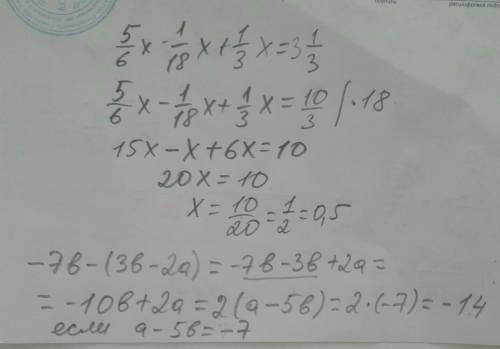 5/6 x - 1/18 x + 1/3 x = 3 1/3
5/6 x - 1/18 x + 1/3 x = 10/3 / · 18
15x - x + 6x = 10
20x = 10
x = 10/20 = 1/2 = 0,5
-7в - (3в - 2а) = -7в - 3в + 2а =
= -10в + 2а = 2(а - 5в) = 2 · (-7) = -14
если а - 5в = -7